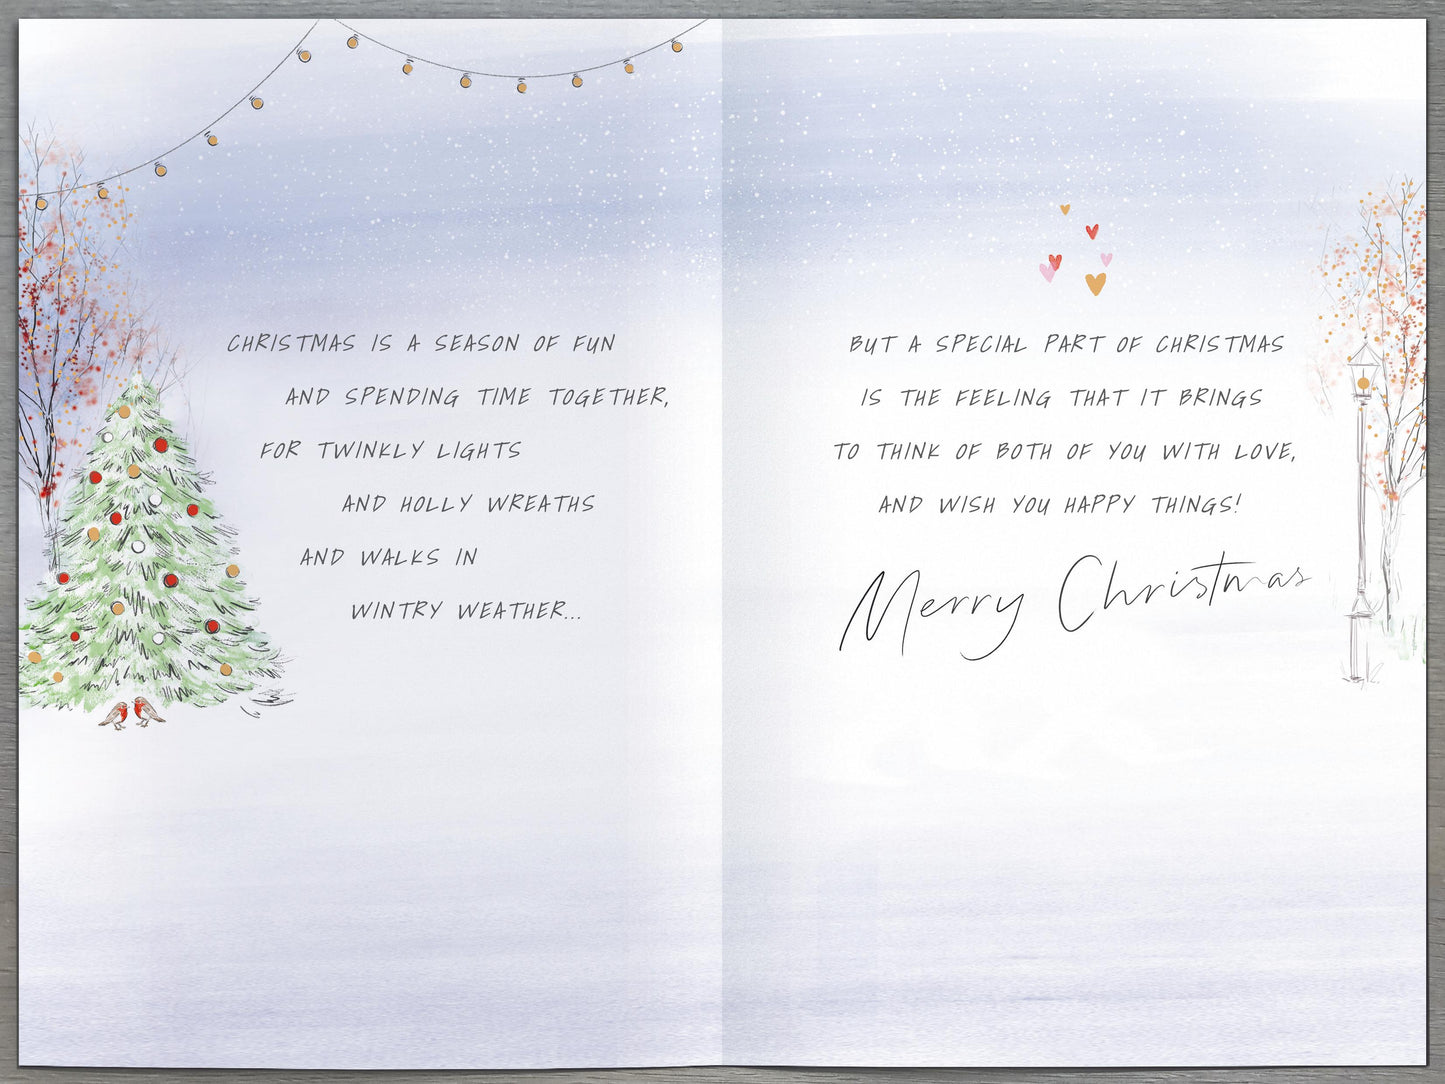 CHRISTMAS IS A SEASON OF FUN
AND SPENDING TIME TOGETHER,
FOR TWINKLY LIGHTS
AND HOLLY WREATHS
AND WALKS IN
WINTRY WEATHER...
BUT A SPECIAL PART OF CHRISTMAS
IS THE FEELING THAT IT BRINGS
TO THINK OF BOTH OF YOU WITH LOVE,
AND WISH YOU HAPPY THINGS!
Merry Christmas